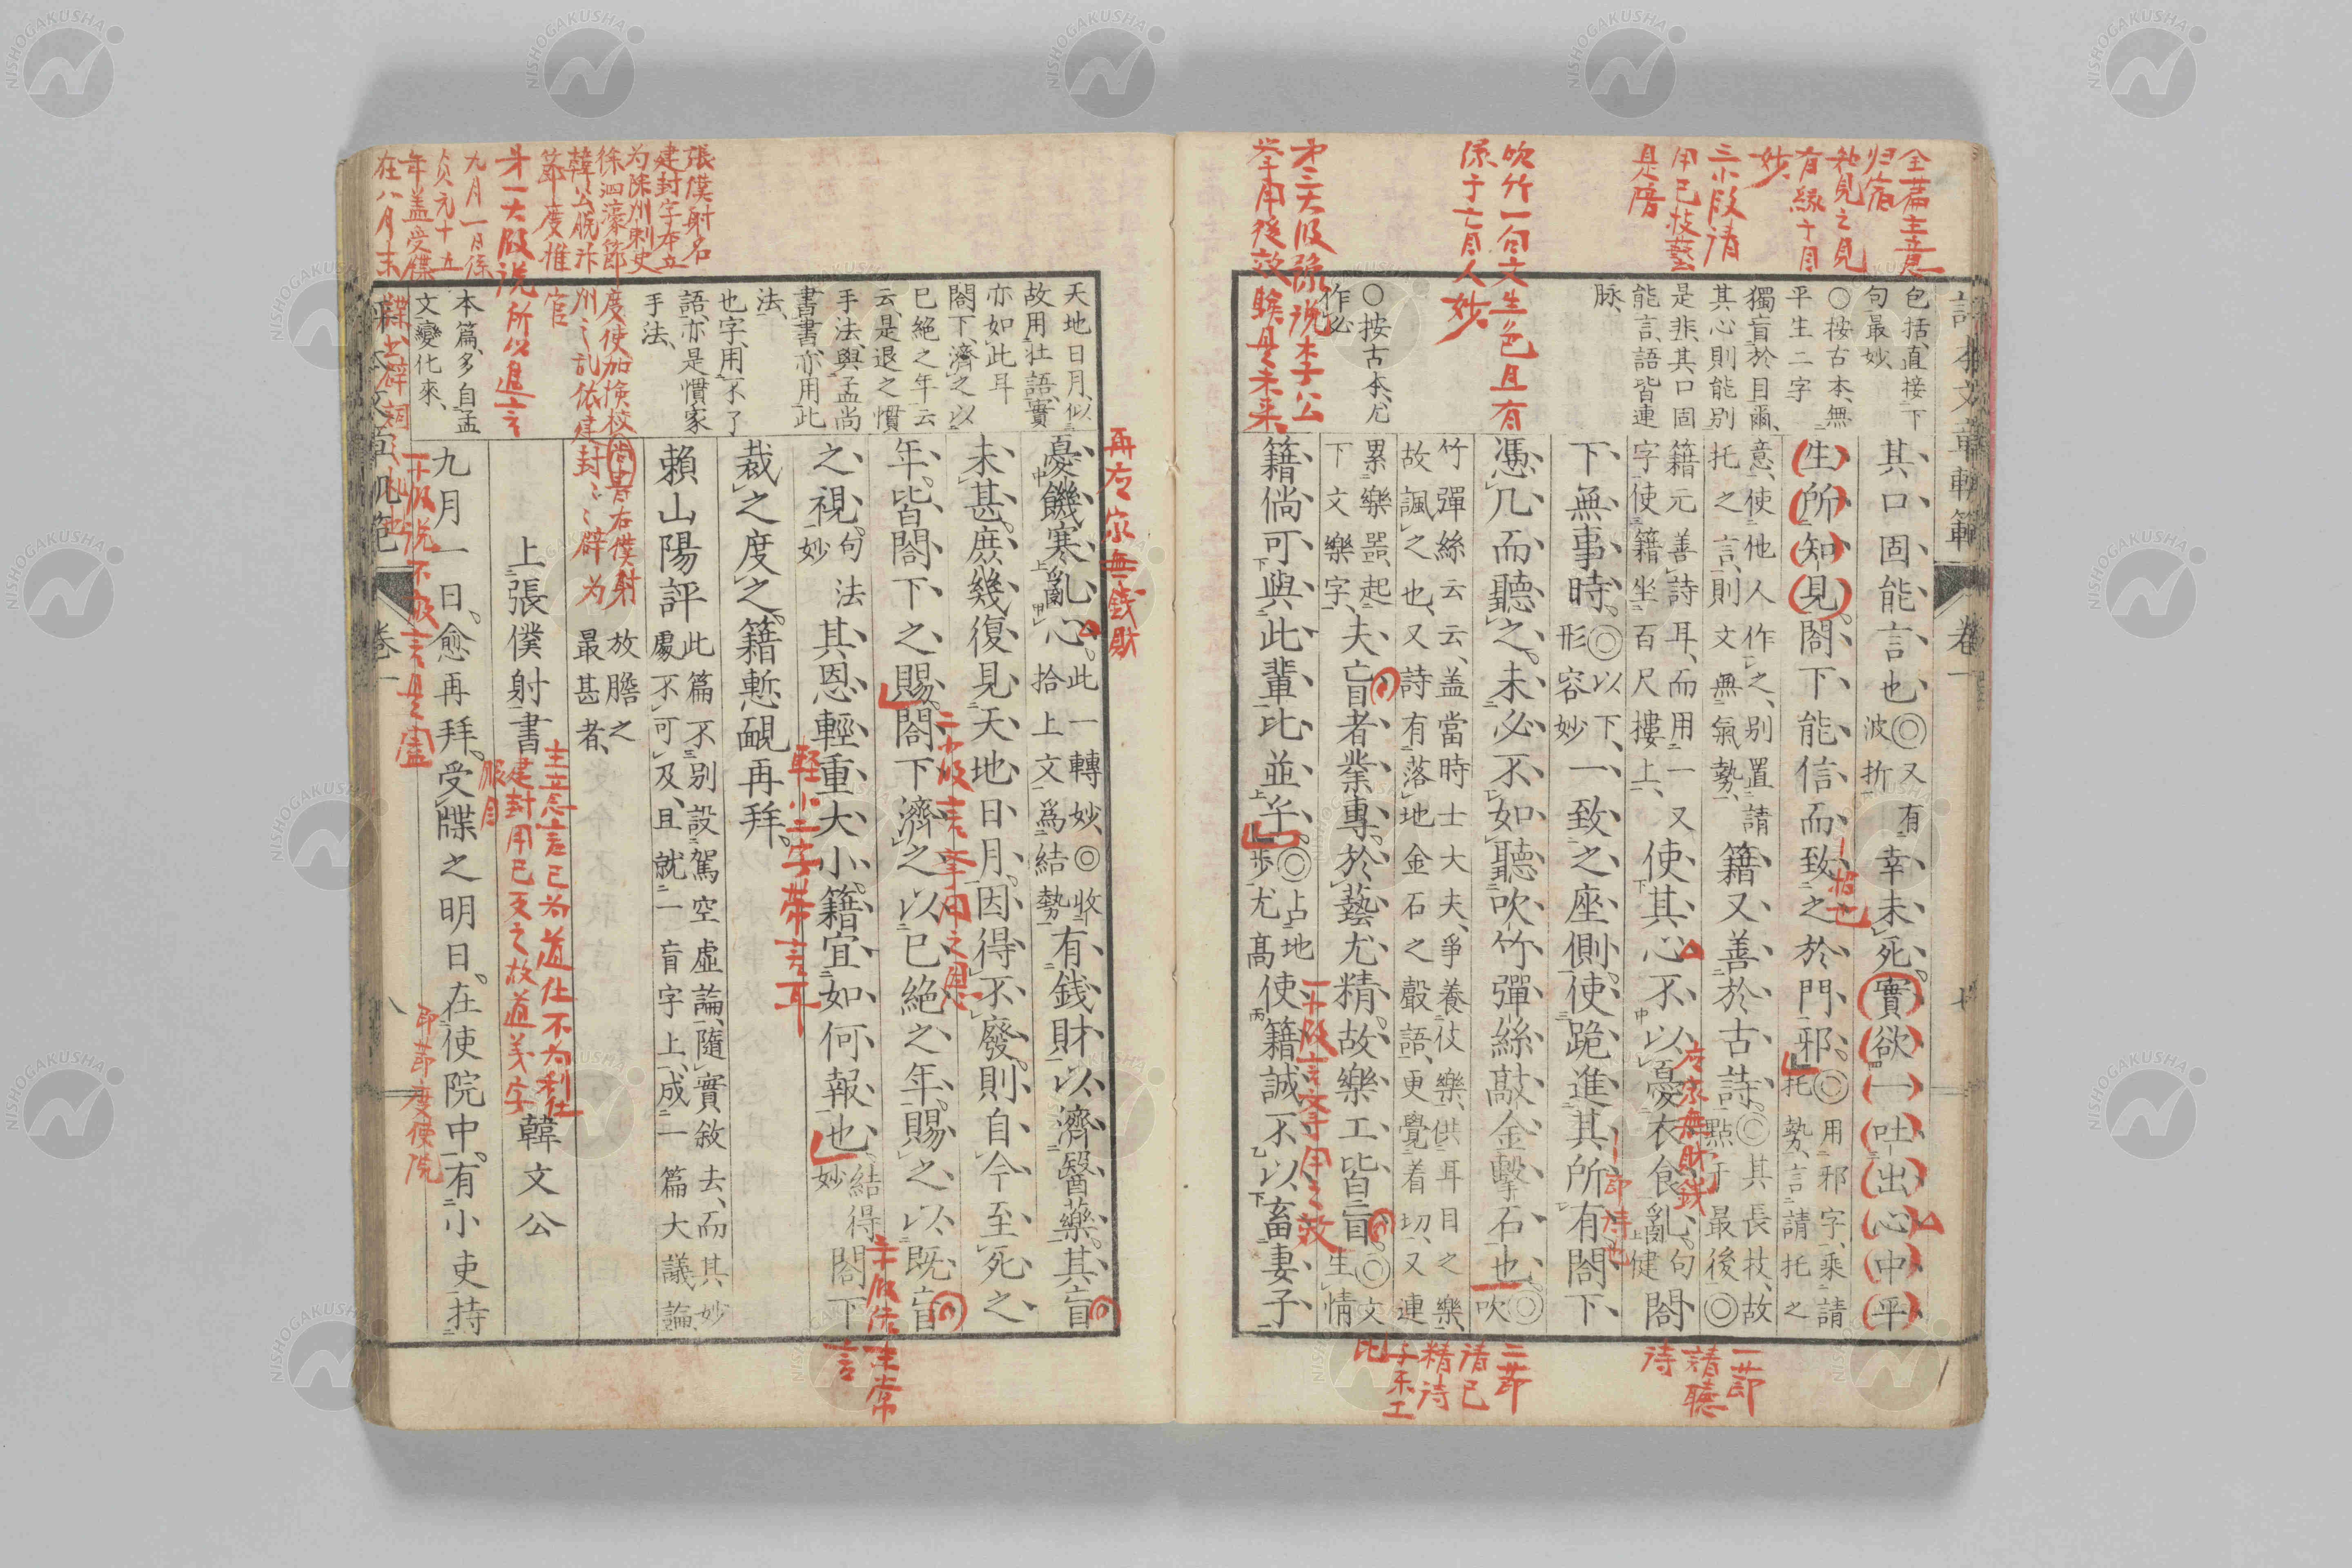 評本文章軌範 卷一 七
全篇主意
归宿
知見之見
有縁于目
妙
三小段請
用已技藝
是陪
吹竹一句文生色且有
係于盲人妙
才三大段
挙用後效
包括、直接下
句最妙、
○按古本、無
平生二字
獨盲於目爾、
其心則能別
是非、其口固
能言、語皆連
脉、
○按古本、尤
作必
其口固能言也◎又有波折幸未死。實欲一吐出心中平
生所知見。閤下能信而致之於門邪。◎用邪字、乘請托勢、言請托之
意、使他人作之、別置請
托之言、則文無氣勢、
籍又善於古詩。◎其長技、故點于最後◎
籍元善詩耳、而用一又
字使籍坐百尺摟上、
使其心不以憂衣食亂。句健閤
下無事時。◎以下、形容妙一致之座側。使跪進其所有閤下
憑几而聽之。未必不如聽吹竹彈絲敲金擊石也◎吹
竹彈絲云云、盖當時士大夫、爭養伎樂、供耳目之樂、
故諷之也、又詩有落地金石之聲語、更覺着切、又連
累樂噐、起
下文樂字、
夫盲者業專。於藝尤精。故樂工皆盲。◎文生情
籍倘可與此輩比並乎。◎占地步尤高使籍誠不以畜妻子
左家無財銭
一節
請聽
詩
二節
請已
精詩
于樂工
比
再应家無銭財
天地日月、似
故用壯語、實
亦如此耳
閤下、濟之以
已絕之年云
云、是退之慣
手法、與孟尚
書書、亦用此
法、
也字、用不了
語、亦是慣家
手法、
本篇、多自孟
文變化來、
憂饑寒亂心。此一轉妙、◎收拾上文爲結勢有錢財以濟醫藥。其盲
未甚。庶幾復見天地日月。因得不廢。則自今至死之
年。皆閤下之賜。閤下濟之以已絕之年。賜之以既盲
之視。句法妙其恩輕重大小。籍宜如何報也。結得妙閤下
裁之度之。籍慙靦再拜。
賴山陽評此篇不別設駕空虛論、隨實敘去、而其妙
處不可及、且就二盲字上、成一篇大議論、
放膽之
最甚者、
上張僕射書 韓文公
九月一日。愈再拜。受牒之明日。在使院中。有小吏持
張僕射名
建封字本立
为除州刺史
徐泗濠節
度使加検校
尚書右僕射
韓公脱汴
州之乱依建
封封辟为
節度推
官
才一大段説所以進言
九月一日係
貞元十五
年盖受牒
在八月末
主意言已为道仕不为利仕
建封用已亦之故道义字
眼目
即節度使院
輕小二字帯言耳